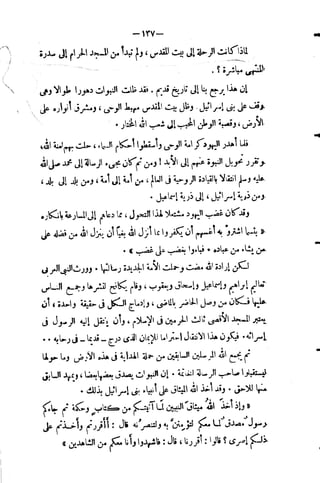 — ١٣٧ —
لماذا كانت الرحلة إلى بيت المقدس ، ولم تبدأ من المسجد الحرام إلى سدرة
المنتهى مباشرة . ؟
إن هذا يرجع بنا إلى تاريخ قديم . فقد ظلت النبوات دهورا طوالا وهى
وقف على بنى إسرائيل . وظل بيت المقدس مهبط الوحى ، ومشرق أنواره على
الأرض ، وقصبة الوطن المحبب إلى شعب الله المختار .
فلما أهدر اليهود كرامة الوحى وأسقطوا أحكام السماء ، حلت بهم لعنة الله ،
وتقرر تحويل النبوة عنهم إلى الأبد ! ومن ثم كان مجىء الرسالة إلى محمد صلى الله
عليه وسلم انتقالا بالقيادة الروحية فى العالم ، من أمة إلى أمة ، ومن بلد إلى بلد ،
ومن ذرية إسرائيل ، إلى ذرية إسماعيل .
وقد كان غضب اليهود مشتملا لهذا التحول ، مما دعاهم إلى المسارعة بإنكاره
« بئسما اشتروا به أنفسهم أن يكفروا بما أنزل الله بغيا أن ينزل الله من فضله على
من يشاء من عباده ، فباءوا بغضب على غضب » .
لكن إرادة الله مضت وحملت الأمة الجديدة رسالتها . وورث النبى العربى
تعاليم إبراهيم وإسماعيل وإسحاق ويعقوب ، وقام يكافح لنشرها وجمع الناس
عليها فكان من وصل الحاضر بالماضى ، وإدماج الكل فى حقيقة واحدة ، أن
يعتبر المسجد الأقصى ثالث الحرمين فى الإسلام ، وأن ينتقل إليه الرسول فى
إسرائه ، فيكون هذا الانتقال احتراما للإيمان الذى درج - قديما - فى رحابه . .
ثم يجمع الله المرسلين السابقين من حملة الهداية فى هذه الأرض وما حولها
ليستقبلوا صاحب الرسالة الخاتمة . إن النبوات يصدق بعضها بعضا ، ويمهد السابق
منها للاحق . وقد أخذ الله الميثاق على أنبياء بنى إسرائيل بذلك .
« وإذ أخذ الله ميثاق النبيين لما آتيتكم من كتاب وحكمة ثم جاءكم
رسول مصدق لما معكم لتؤمنن به ولتنصرنه قال : أأقررتم وأخذتم على
ذلكم إصرى ؟ قالوا : أقررنا ، قال : فاشهدوا وأنا معكم من الشاهدين »